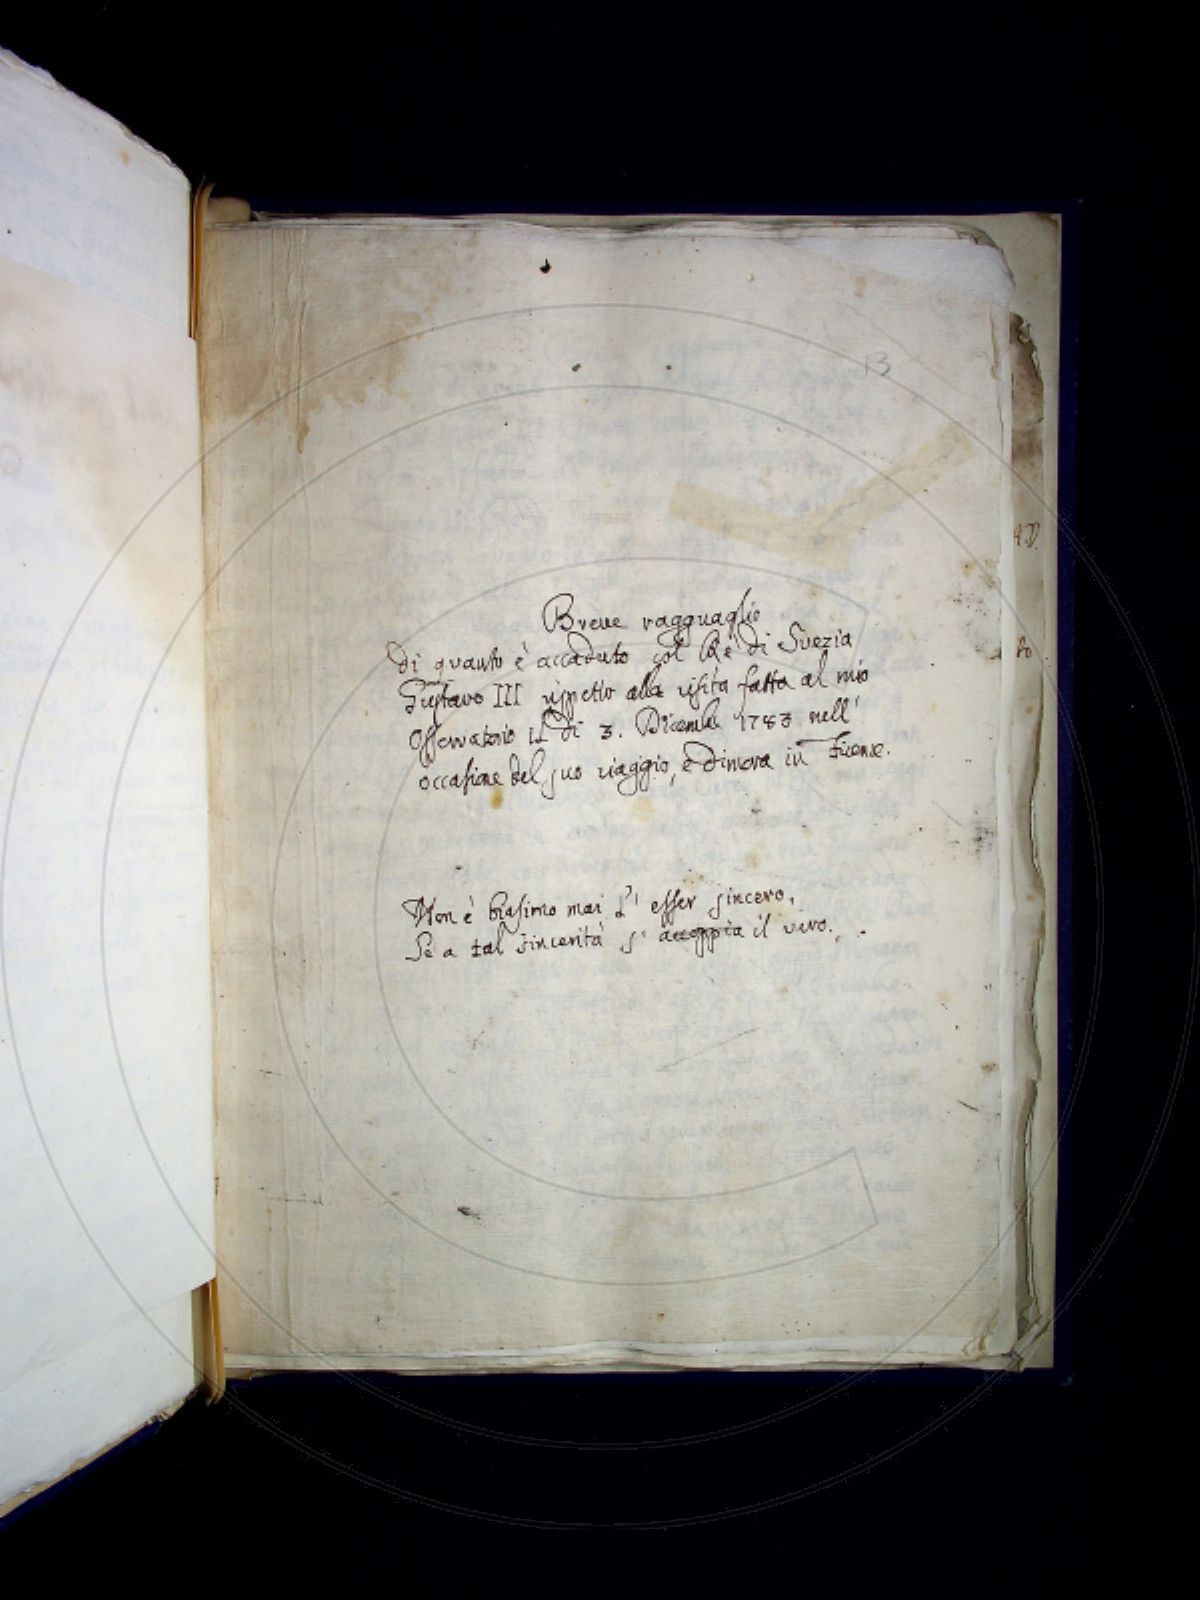 13
Breve ragguaglio
di quanto è accaduto col Rè di Svezia
Gustavo III rispetto alla visita fatta al mio
Osservatorio il dì 3. Dicemb. 1783 nell'
occasione del suo viaggio, e dimora in Firenze.
Non è biasimo mai l' esser sincero,
Se a tal sincerità s' accoppia il vero.